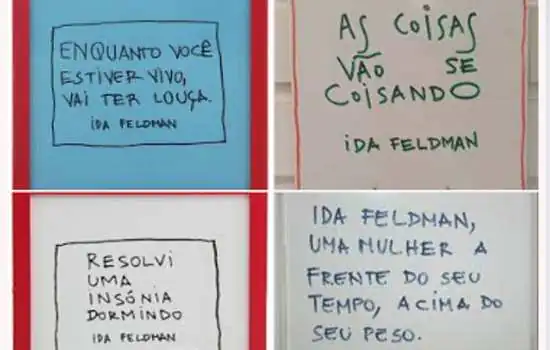 ENQUANTO VOCÊ
ESTIVER VIVO,
VAI TER LOUÇA.
iDA FELDMAN
AS COiSAS
VÃO SE
COiSANDO
iDA FELDMAN
RESOLVi
UMA
INSÔNIA
DORMINDO
IDA FELDMAN
IDA FELDMAN,
UMA MULHER A
FRENTE DO SEU
TEMPO, ACIMA DO
SEU PESO.